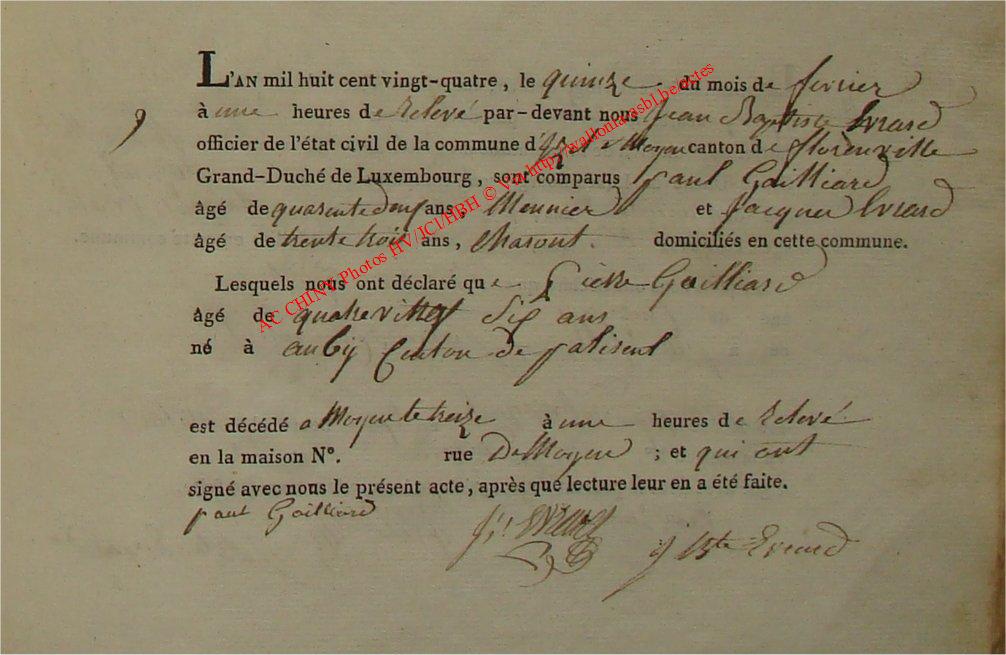 9
L'AN mil huit cent vingt-quatre, le quinze du mois de fevrier
à une heures de relevé par-devant nous Jean Baptiste Evrard
officier de l'état civil de la commune d'izel & Moyen canton de florenville
Grand-Duché de Luxembourg, sont comparus paul Goilliard
âgé de quarente deux ans, Meunier et Jacques Evrard
âgé de trente trois ans, Charont. domiciliés en cette commune.
Lesquels nous ont déclaré que Pierre Goilliard
âgé de quatrevingt dix ans
né à auby Canton de paliseul
est décédé a Moyen le treize à une heures de relevé
en la maison N°. rue De Moyen ; et qui ont
signé avec nous le présent acte, après que lecture leur en a été faite.
paul Goilliard
Evrard
j Bte Evrard
AC CHINY Photos HV/ICI/HBH © Via http://wallonia-asbl.be/textes